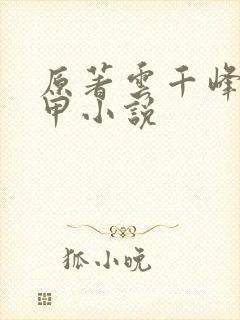 原著雲千峰
甲小說
狐小晚